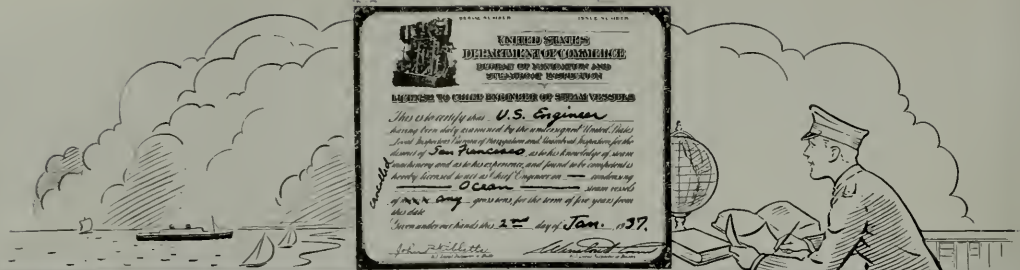 SERIAL NUMBER ISSUE NUMBER
UNITED STATES
DEPARTMENT OF COMMERCE
BUREAU OF NAVIGATION AND
STEAMBOAT INSPECTION
LICENSE TO CHIEF ENGINEER OF STEAM VESSELS
This is to certify that U.S. Engineer
having been duly examined by the undersigned United States
Local Inspectors Bureau of Navigation and Steamboat Inspection for the
district of San Francisco, as to his knowledge of steam
machinery and as to his experience, and found to be competent is
hereby licensed to act as Chief Engineer on — condensing
Ocean steam vessels
of xxx any gross tons, for the term of five years from
this date
Given under our hands this 2nd day of Jan. 1937.
Cancelled